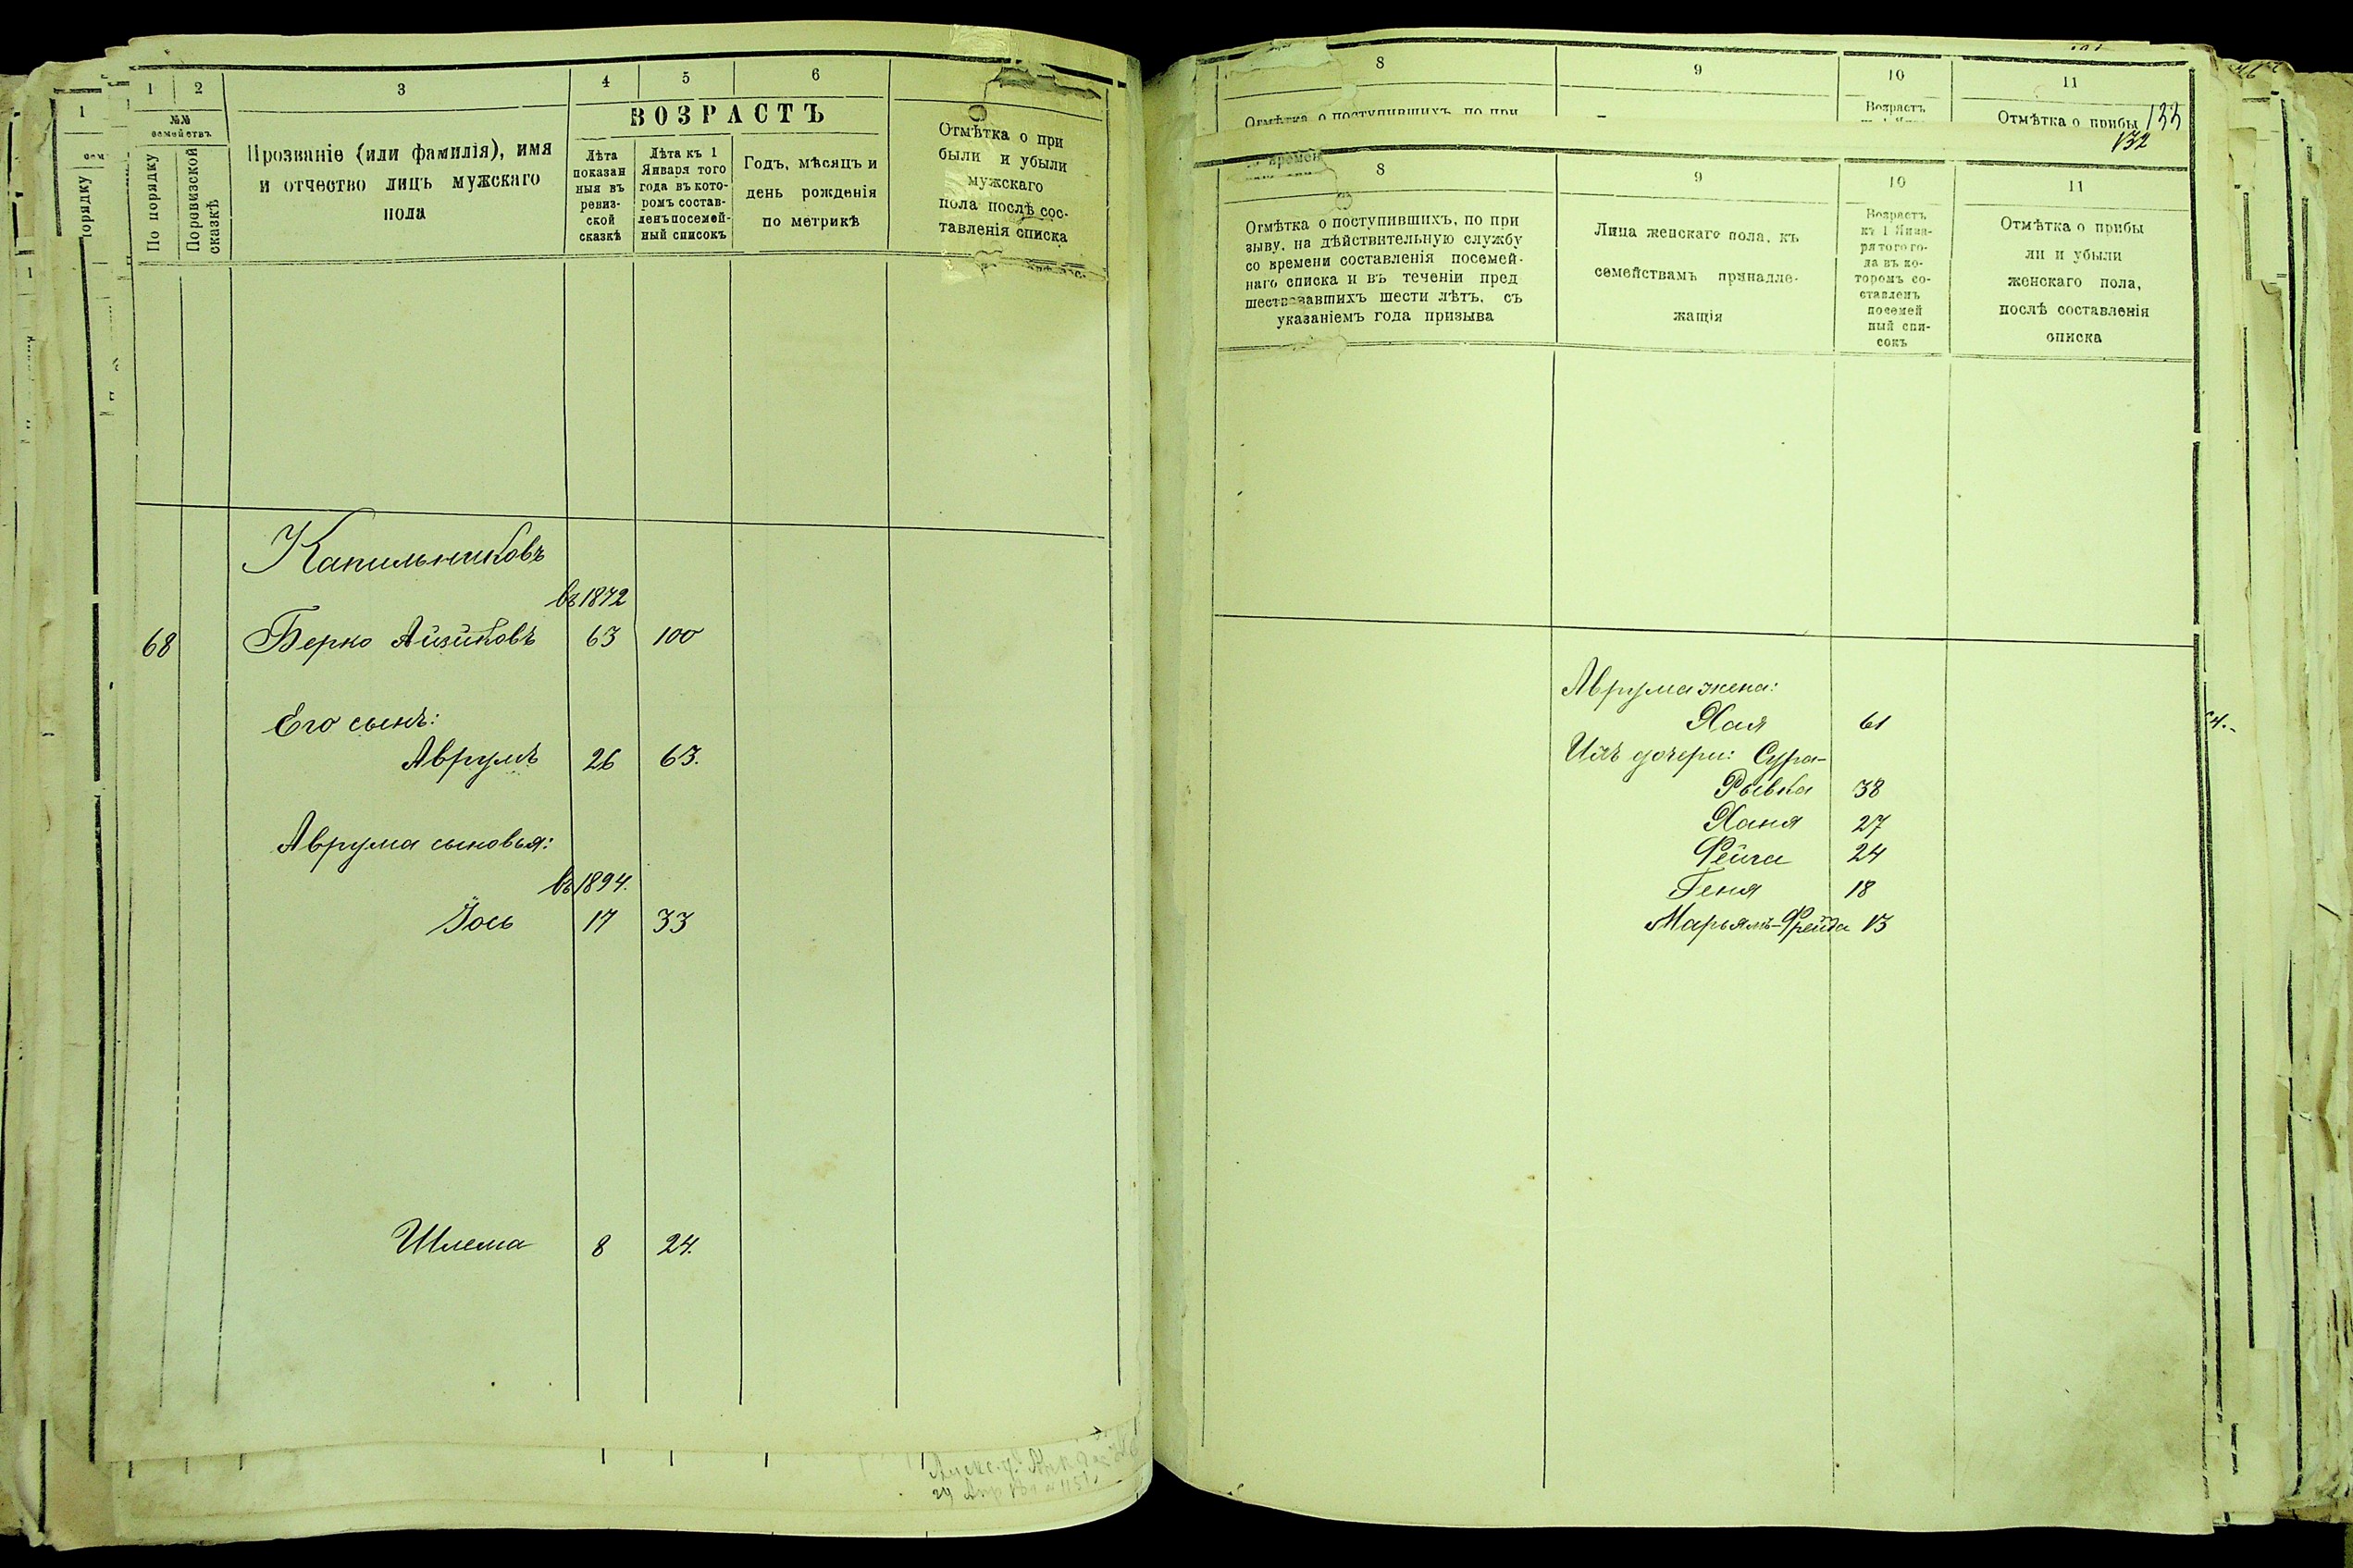 1 2 3 4 5 6
№№ семействъ
По порядку
По ревизской сказкѣ
Прозваніе (или фамилія), имя
и отчество лицъ мужскаго
пола
ВОЗРАСТЪ
Лѣта
показан
ныя въ
ревиз-
ской
сказкѣ
Лѣта къ 1
Января того
года въ кото-
ромъ состав-
ленъ посемей-
ный списокъ
Годъ, мѣсяцъ и
день рожденія
по метрикѣ
Отмѣтка о при
были и убыли
мужскаго
пола послѣ сос-
тавленія списка
Капильниковъ
въ 1872
68 Берко Айзиковъ 63 100
Его сынъ:
Аврумъ 26 63.
Аврума сыновья:
въ 1894.
Іось 17 33
Шлема 8 24.
8 9 10 11
Отмѣтка о поступившихъ по при
Возрастъ
Отмѣтка о прибы
133
132
8 9 10 11
Отмѣтка о поступившихъ, по при
зыву, на дѣйствительную службу
со времени составленія посемей-
наго списка и въ теченіи пред
шествовавшихъ шести лѣтъ, съ
указаніемъ года призыва
Лица женскаго пола, къ
семействамъ принадле-
жащія
Возрастъ
къ 1 Янва-
ря того го-
да въ ко-
торомъ со-
ставленъ
посемей
ный спи-
сокъ
Отмѣтка о прибы
ли и убыли
женскаго пола,
послѣ составленія
списка
Аврума жена:
Хая 61
Ихъ дочери: Сура-
Рывка 38
Ханя 27
Фейга 24
Геня 18
Марьямъ-Фрейда 13